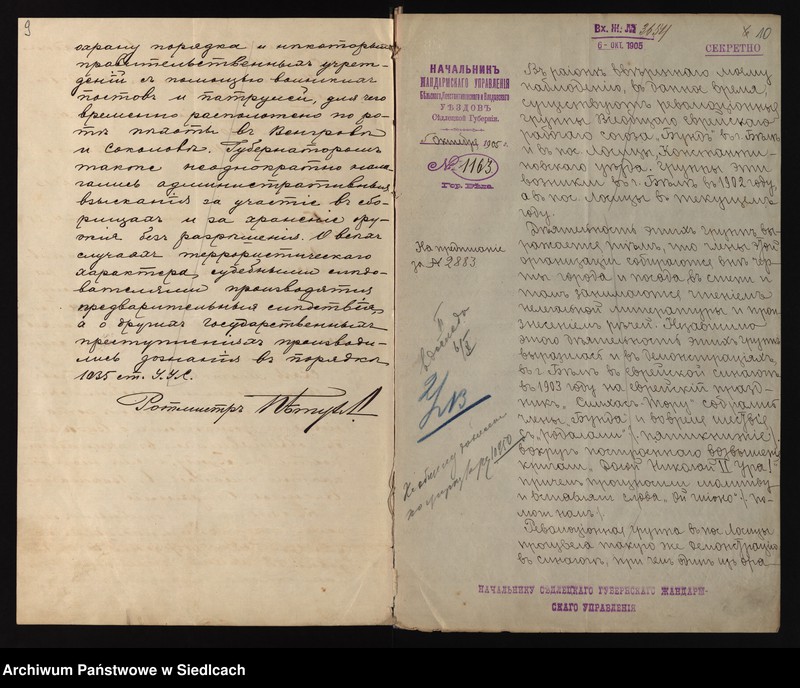 9
охрану порядка и некоторыхъ
правительственныхъ учреж-
деній съ помощью воинскихъ
постовъ и патрулей, для чего
временно расположено по ро-
тѣ пѣхоты въ Венгровѣ
и Соколовѣ. Губернаторомъ
также неоднократно нала-
гались административныя
взысканія за участіе въ сбо-
рищахъ и за храненіе ору-
жія безъ разрѣшенія. О всѣхъ
случаяхъ террористическаго
характера судебными слѣдо-
вателями производятся
предварительныя слѣдствія,
а о другихъ государственныхъ
преступленіяхъ производи-
лись дознанія въ порядкѣ
1035 ст. У.У.С.
Ротмистръ
10
Вх. Ж. №
6 - ОКТ. 1905
СЕКРЕТНО
НАЧАЛЬНИКЪ
ЖАНДАРМСКАГО УПРАВЛЕНІЯ
Бѣльскаго, Константиновскаго и Влодавскаго
УѢЗДОВЪ
Сѣдлецкой Губерніи.
Октября 1905 г.
№ 1163
Гор. Бѣла.
На предписаніе
за № 2883
Въ районѣ ввѣреннаго моему
наблюденію, въ данное время,
существуютъ революціонныя
группы Всеобщаго еврейскаго
рабочаго союза "Бундъ" въ г. Бѣлѣ
и въ пос. Лосицы, Константи-
новскаго уѣзда. Группы эти
возникли въ г. Бѣлѣ въ 1902 году,
а въ пос. Лосицы въ текущемъ
году.
Дѣятельность этихъ группъ вы-
ражается тѣмъ, что члены этой
организаціи собираются внѣ чер-
ты города и посада, въ
тамъ занимаются чтеніемъ
нелегальной литературы и прои-
знесеніемъ рѣчей. Независимо
этого дѣятельность этихъ группъ
выразилась и въ демонстраціяхъ,
въ г. Бѣлѣ въ еврейской синагогѣ
въ 1903 году на еврейскій празд-
никъ "Симхасъ Тору" собрались
члены "Бунда" и вовремя шествія
съ "родалами"
вокругъ построеннаго возвышенія
кричали "Долой Николай II Ура!"
причемъ произносили молитву
и вставляли слова "Ой
/по-
моги намъ/.
Революціонная группа въ пос. Лосицы
произвела такую же демонстрацію
въ синагогѣ, при чемъ одинъ изъ ора-
НАЧАЛЬНИКУ СѢДЛЕЦКАГО ГУБЕРНСКАГО ЖАНДАРМ-
СКАГО УПРАВЛЕНІЯ
Archiwum Państwowe w Siedlcach